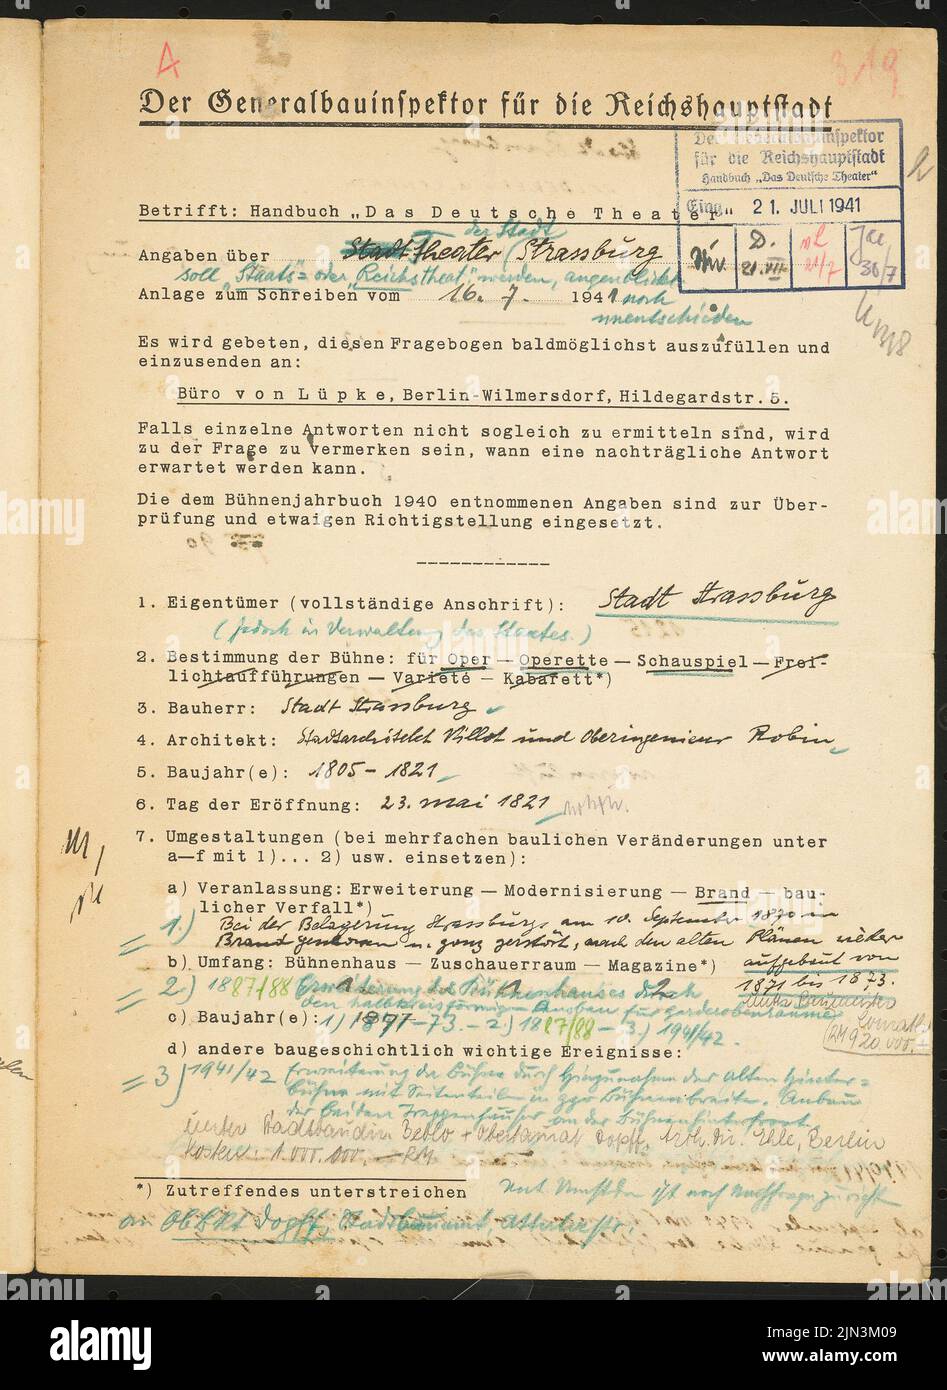 A
319
Der Generalbauinspektor für die Reichshauptstadt
Der Generalbauinspektor
für die Reichshauptstadt
Handbuch „Das Deutsche Theater"
Eing. 21. JULI 1941
D.
21.VII
21/7
30/7
Betrifft: Handbuch „Das Deutsche Theater"
der Stadt
Angaben über Stadttheater Strassburg
soll „Staats"- oder „Reichstheat" werden, augenblicklich
Anlage zum Schreiben vom 16. 7. 1941 noch
unentschieden
Es wird gebeten, diesen Fragebogen baldmöglichst auszufüllen und
einzusenden an:
Büro von Lüpke, Berlin-Wilmersdorf, Hildegardstr. 5.
Falls einzelne Antworten nicht sogleich zu ermitteln sind, wird
zu der Frage zu vermerken sein, wann eine nachträgliche Antwort
erwartet werden kann.
Die dem Bühnenjahrbuch 1940 entnommenen Angaben sind zur Über-
prüfung und etwaigen Richtigstellung eingesetzt.
1. Eigentümer (vollständige Anschrift): Stadt Strassburg
(jedoch in Verwaltung des Staates.)
2. Bestimmung der Bühne: für Oper — Operette — Schauspiel — Frei-
lichtaufführungen — Varieté — Kabarett*)
3. Bauherr: Stadt Strassburg
4. Architekt: Stadtarchitekt Villot und Oberingenieur Robin
5. Baujahr(e): 1805-1821
6. Tag der Eröffnung: 23. Mai 1821
7. Umgestaltungen (bei mehrfachen baulichen Veränderungen unter
a—f mit 1)... 2) usw. einsetzen):
a) Veranlassung: Erweiterung — Modernisierung — Brand — bau-
licher Verfall*)
1.) Bei der Belagerung Strassburgs am 10. September 1870 in
Brand geschossen u. ganz zerstört, nach den alten Plänen wieder
b) Umfang: Bühnenhaus — Zuschauerraum — Magazine*) aufgebaut von
1871 bis 1873.
2.) 1887/88 Erweiterung des Bühnenhauses durch
den halbkreisförmigen Anbau für Garderobenräume
Conrath
(RM 920 000.—)
c) Baujahr(e): 1) 1871-73. - 2.) 1887/88 - 3.) 1941/42.
d) andere baugeschichtlich wichtige Ereignisse:
3) 1941/42 Erweiterung der Bühne durch Hinzunahme der alten Hinter-
bühne mit Seitenteilen in ggr Bühnenbreite. Anbau
der beiden Treppenhäuser an der Bühnenhinterfront.
unter Stadtbaudir. Beblo + Oberbaurat Dopff, Arch. Ehle, Berlin
Kosten: 1.000.000.— RM
*) Zutreffendes unterstreichen
ist noch Nachfrage zu richten
an Obbrt Dopff, Stadtbauamt,